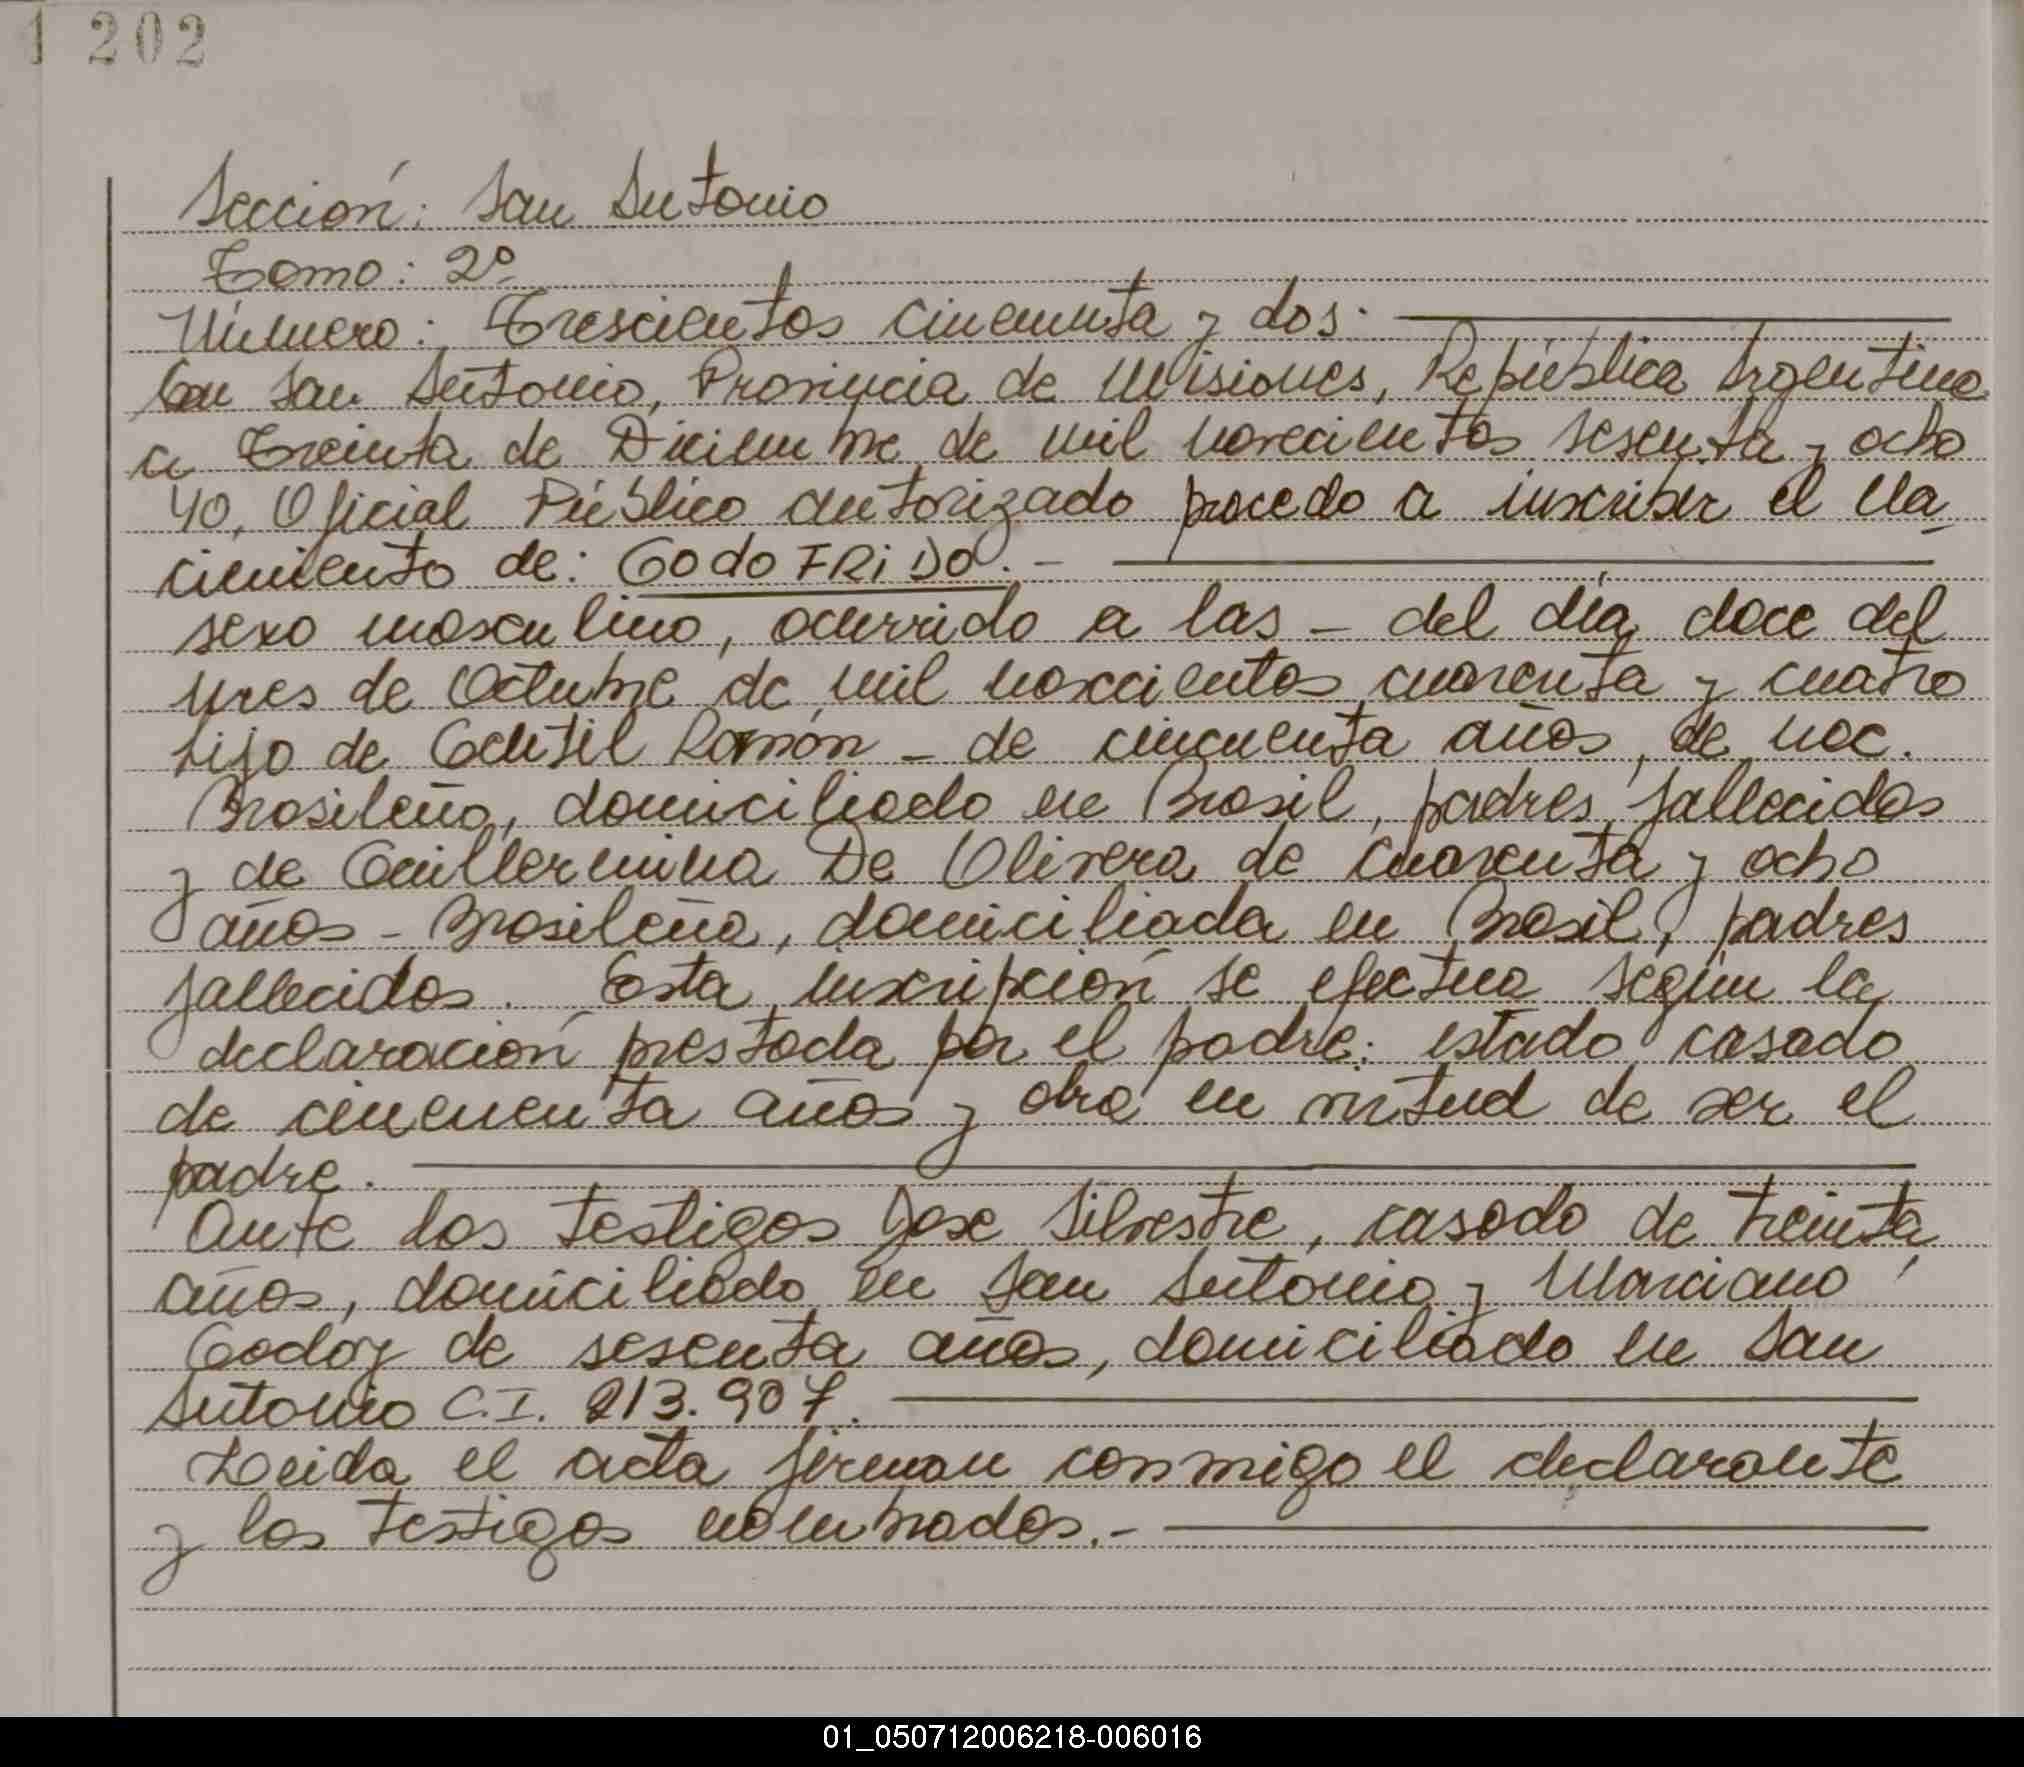 1 202
Sección: San Antonio
Tomo: 2º
Número: Trescientos cincuenta y dos.
En San Antonio, Provincia de Misiones, República Argentina
a Treinta de Diciembre de mil novecientos sesenta y ocho
Yo, Oficial Público autorizado procedo a inscribir el Na
cimiento de: GODOFRIDO.-
sexo masculino, ocurrido a las - del día doce del
mes de Octubre de mil novecientos cuarenta y cuatro
hijo de Gentil Ramón - de cincuenta años, de nac.
Brasileña, domiciliado en Brasil, padres fallecidos
y de Guillermina De Olivera de cuarenta y ocho
años - Brasileña, domiciliada en Brasil, padres
fallecidos. Esta inscripción se efectua según la
declaración prestada por el padre: estado casado
de cincuenta años y obra en virtud de ser el
padre.
Ante los testigos Jose Silvestre, casado de treinta
años, domiciliado en San Antonio y Marciano
Godoy de sesenta años, domiciliado en San
Antonio C.I. 213.907.
Leida el acta firman conmigo el declarante
y los testigos nombrados.-
01_050712006218-006016